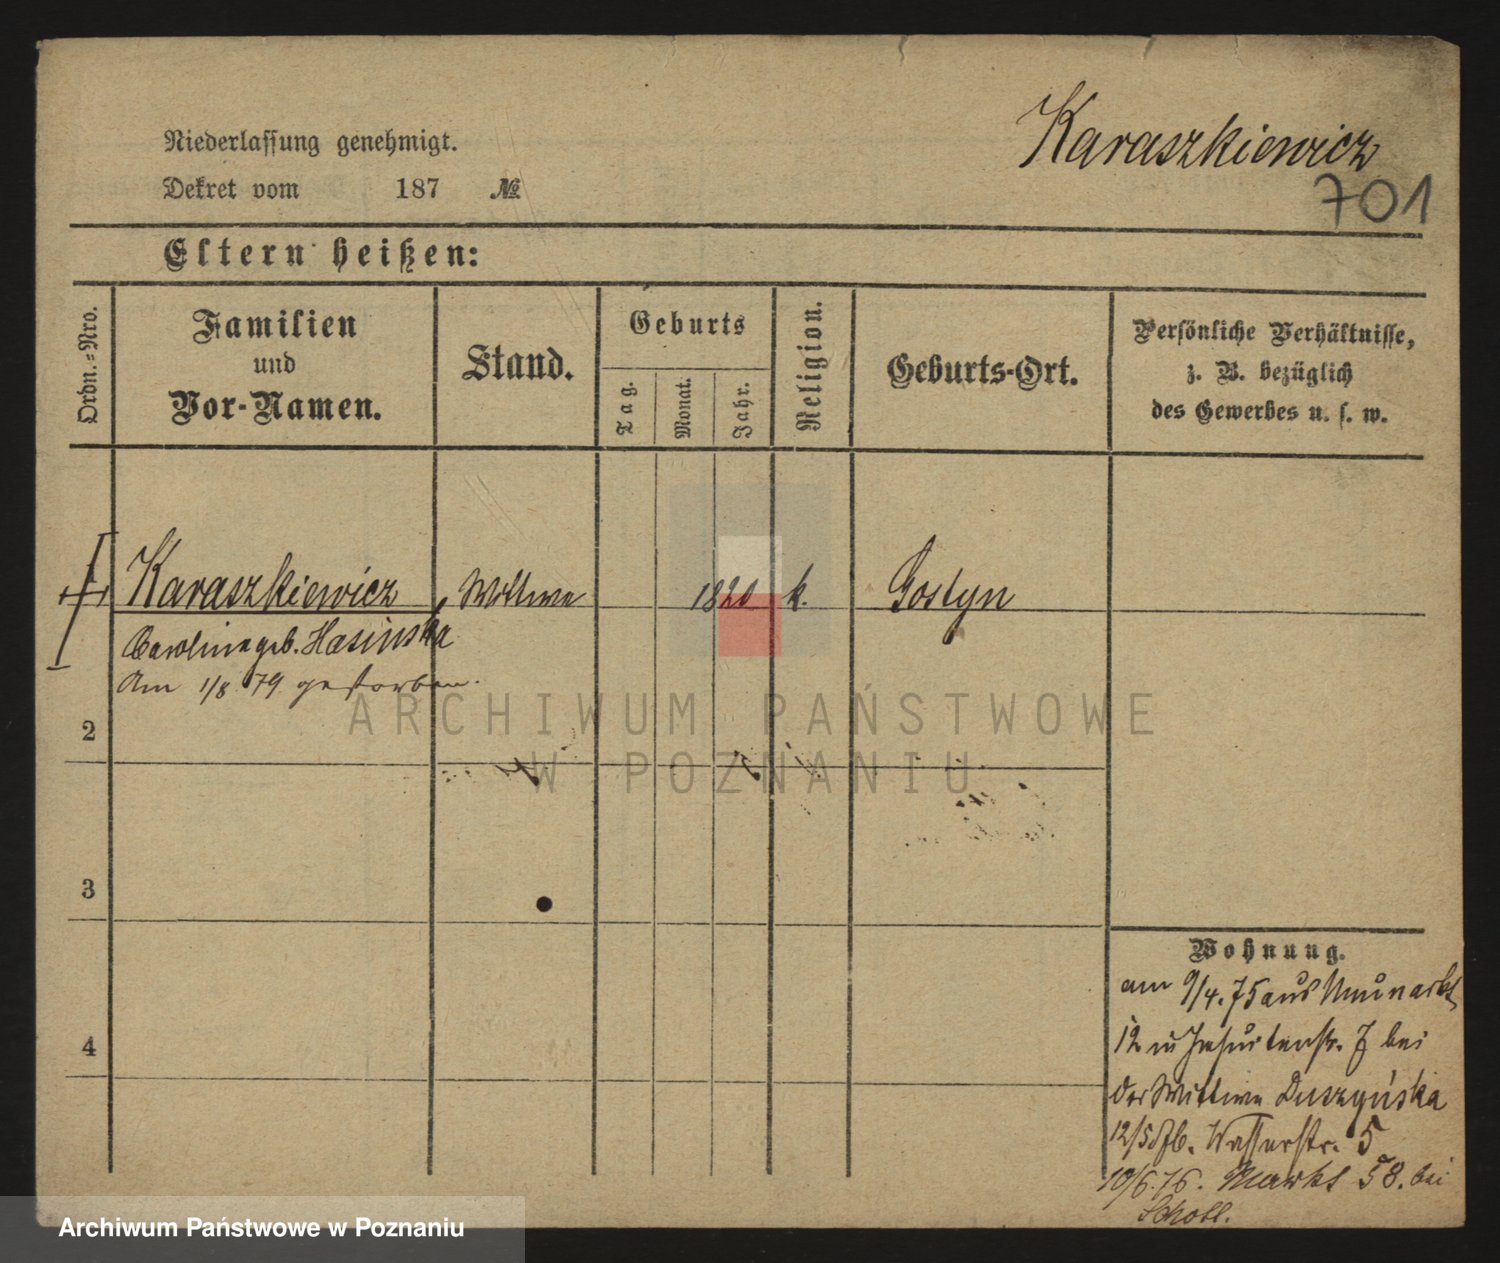 Karaszkiewicz
701
Niederlassung genehmigt.
Dekret vom 187 №
Eltern heißen:
Ordn.-Nro.
Familien
und
Vor-Namen.
Stand.
Geburts
Tag.
Monat.
Jahr.
Religion.
Geburts-Ort.
Persönliche Verhältnisse,
z. B. bezüglich
des Gewerbes u. s. w.
Karaszkiewicz, Wittwe 1820 k. Gostyn
Carolina geb. Hasinska
Am 1/8 79 gestorben.
ARCHIWUM PAŃSTWOWE
W POZNANIU
2
3
4
Wohnung.
am 9/4. 75 aus Neumarkt
12 in Jesuitenstr. 7 bei
der Wittwe Duszyńska
12/5 Wasserstr. 5
10/6. 76. Markt 58. bei
Archiwum Państwowe w Poznaniu